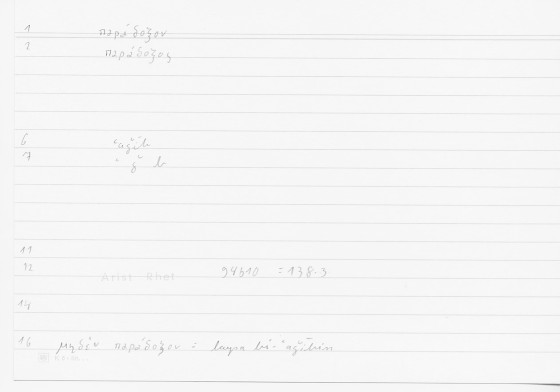 1 παράδοξον
2 παράδοξος
6 ʿaǧīb
7 ʿ ǧ b
11
12 Arist Rhet 94b10 = 138.3
14
16 μηδὲν παράδοξον = laysa bi-ʿaǧībin